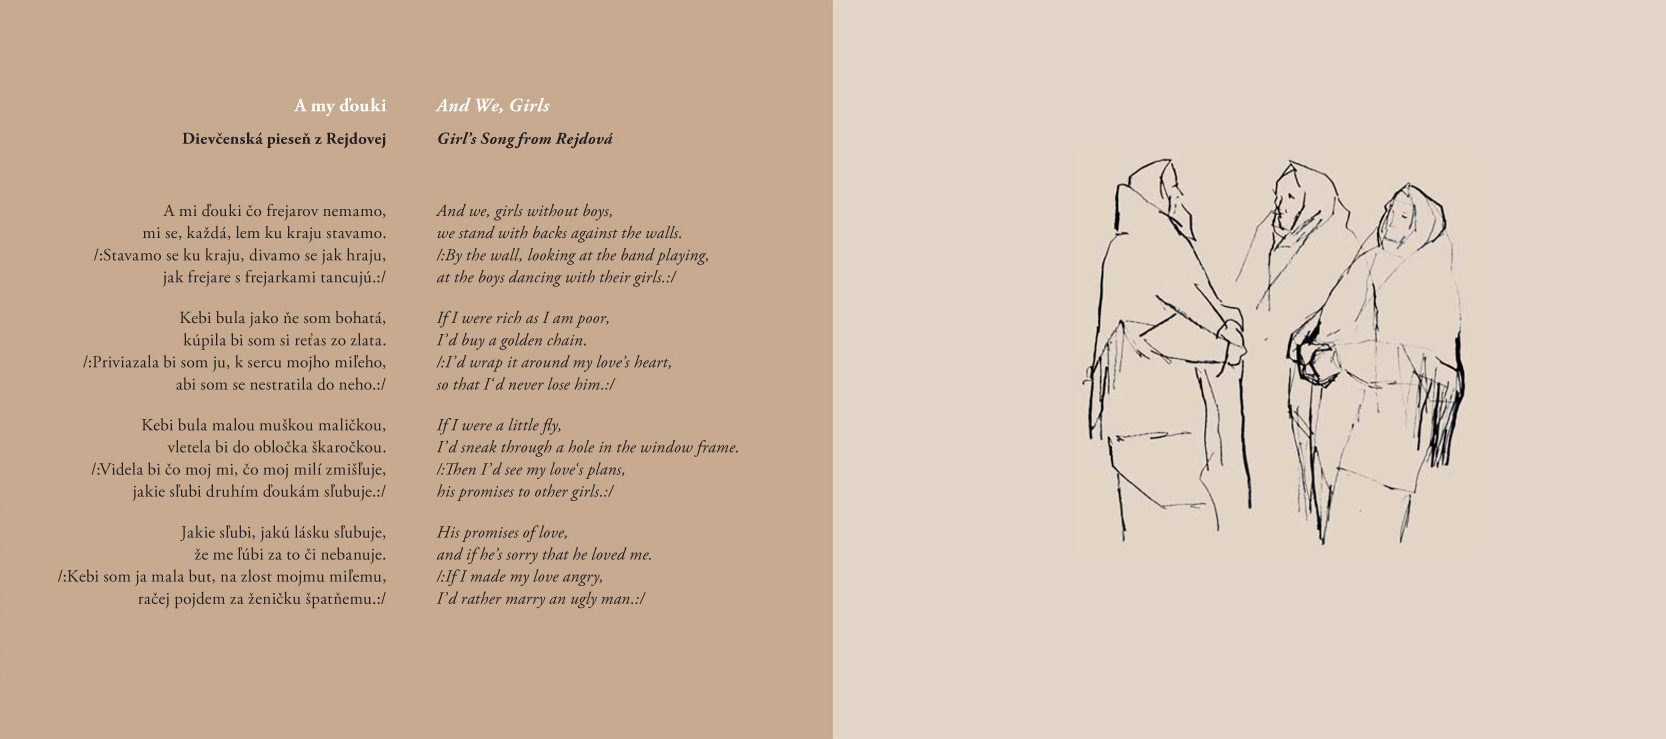 A my ďouki
Dievčenská pieseň z Rejdovej
A mi ďouki čo frejarov nemamo,
mi se, každá, lem ku kraju stavamo.
/:Stavamo se ku kraju, divamo se jak hraju,
jak frejare s frejarkami tancujú.:/
Kebi bula jako ňe som bohatá,
kúpila bi som si reťas zo zlata.
/:Priviazala bi som ju, k sercu mojho miľeho,
abi som se nestratila do neho.:/
Kebi bula malou muškou maličkou,
vletela bi do obločka škaročkou.
/:Videla bi čo moj mi, čo moj milí zmišľuje,
jakie sľubi druhím ďoukám sľubuje.:/
Jakie sľubi, jakú lásku sľubuje,
že me ľúbi za to či nebanuje.
/:Kebi som ja mala but, na zlost mojmu miľemu,
račej pojdem za ženičku špatňemu.:/
And We, Girls
Girl's Song from Rejdová
And we, girls without boys,
we stand with backs against the walls.
/:By the wall, looking at the band playing,
at the boys dancing with their girls.:/
If I were rich as I am poor,
I'd buy a golden chain.
/:I'd wrap it around my love's heart,
so that I'd never lose him.:/
If I were a little fly,
I'd sneak through a hole in the window frame.
/:Then I'd see my love's plans,
his promises to other girls.:/
His promises of love,
and if he's sorry that he loved me.
/:If I made my love angry,
I'd rather marry an ugly man.:/